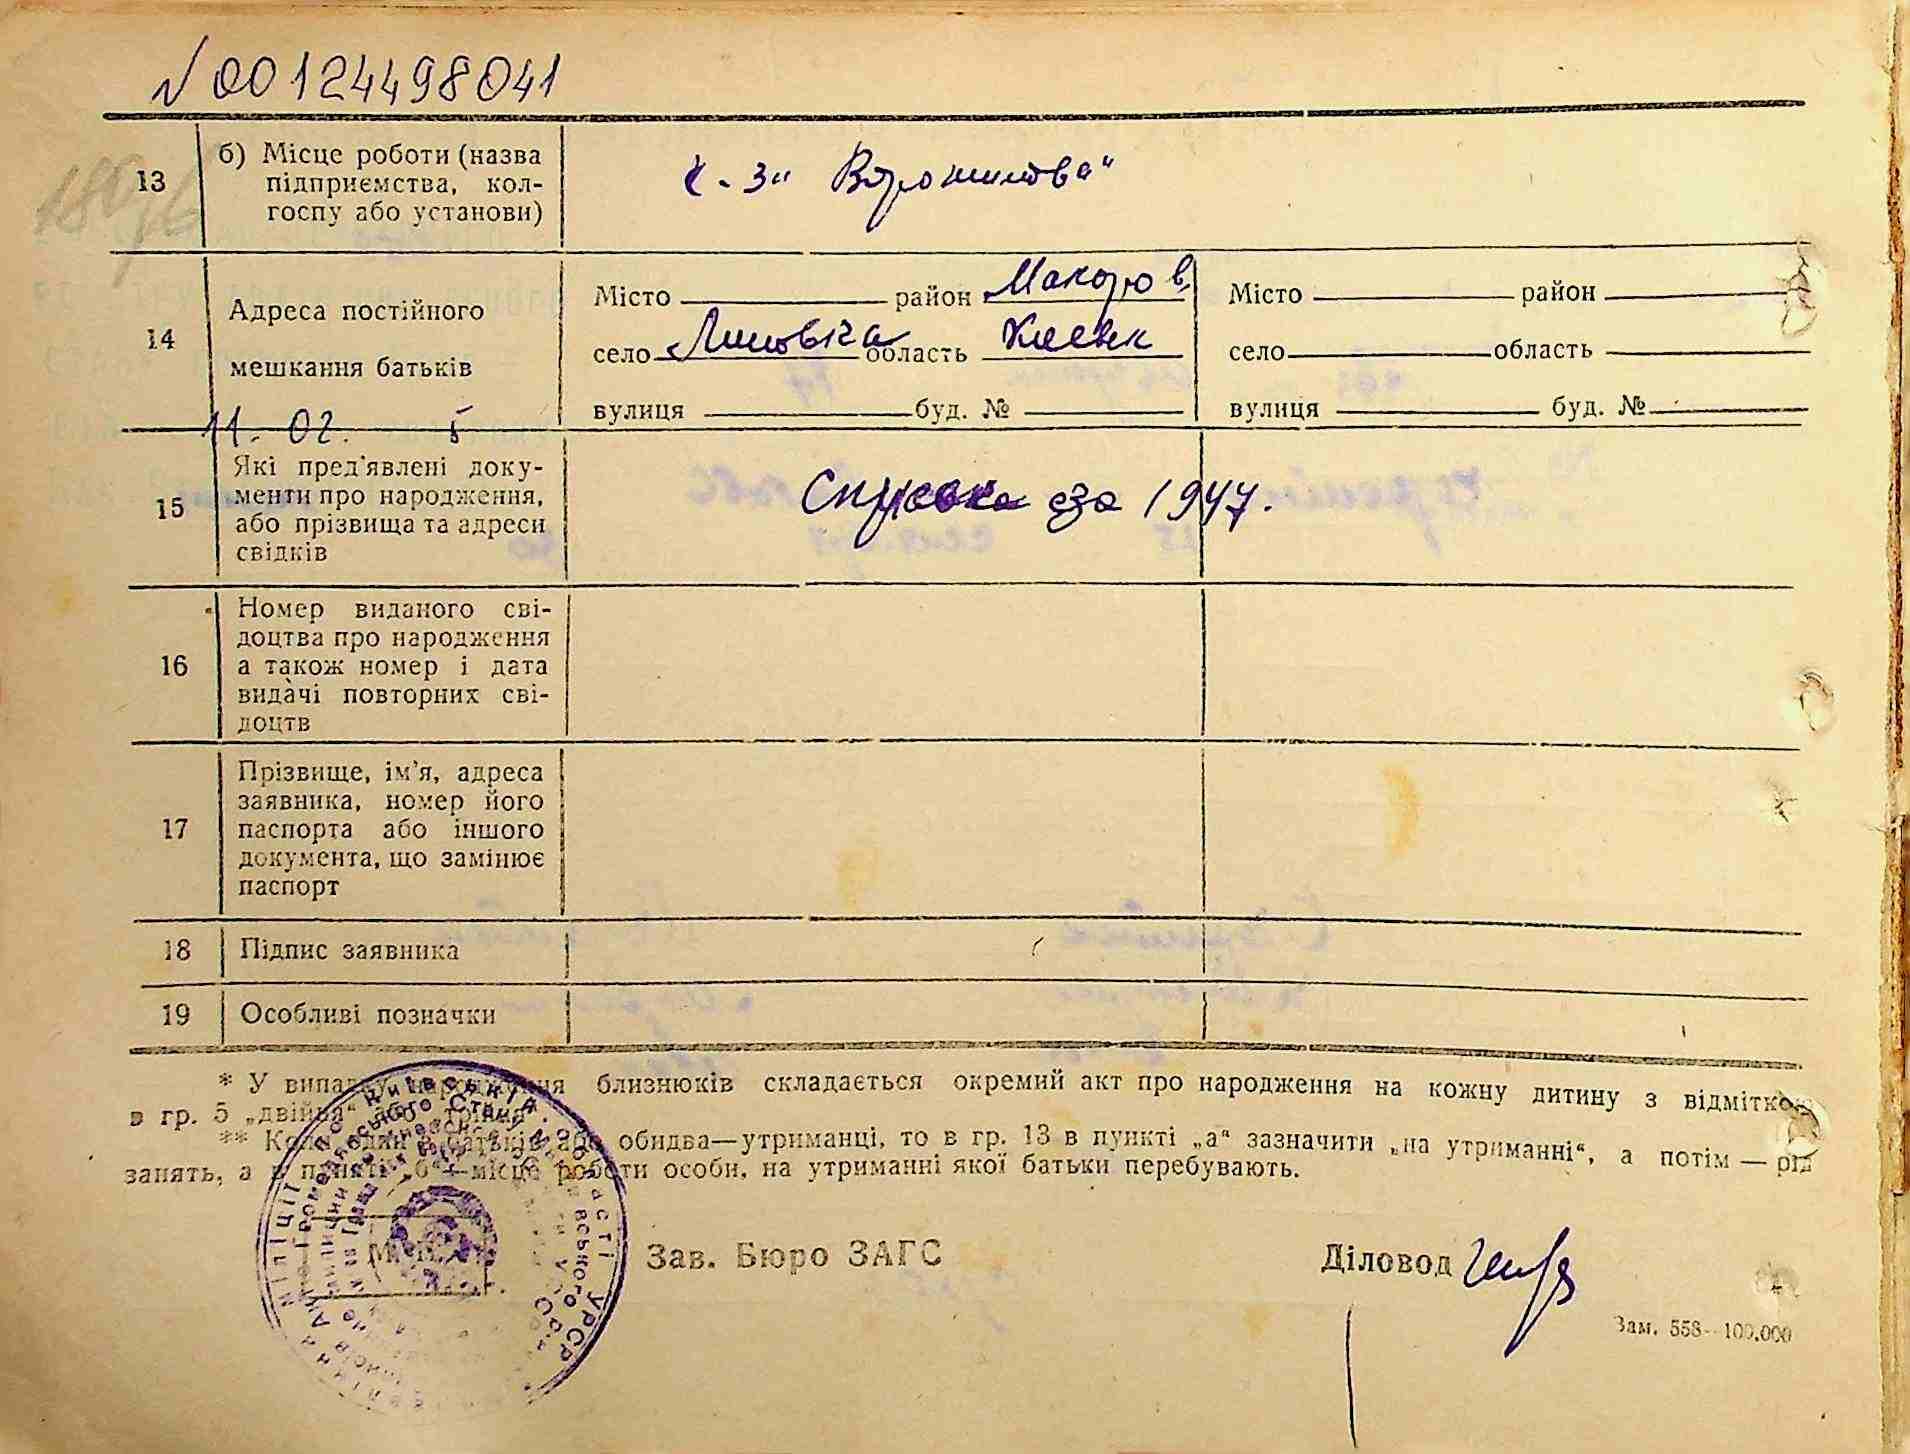 N 00124498041
13
б) Місце роботи (назва
підприємства, кол-
госпу або установи)
к-з „Ворошилова“
14
Адреса постійного
мешкання батьків
Місто район Макарів
село Липовка область Киевск
вулиця буд. №
Місто район
село область
вулиця буд. №
11. 02.
15
Які пред'явлені доку-
менти про народження,
або прізвища та адреси
свідків
Справка за 1947.
16
Номер виданого сві-
доцтва про народження
а також номер і дата
видачі повторних сві-
доцтв
17
Прізвище, ім'я, адреса
заявника, номер його
паспорта або іншого
документа, що замінює
паспорт
18
Підпис заявника
19
Особливі позначки
* У випадку народження близнюків складається окремий акт про народження на кожну дитину з відміткою
в гр. 5 „двійня“ або „трійня“.
** Коли один з батьків або обидва—утриманці, то в гр. 13 в пункті „а“ зазначити „на утриманні“, а потім — рід
занять, а в пункті „б“ — місце роботи особи, на утриманні якої батьки перебувають.
Зав. Бюро ЗАГС
Діловод
Зам. 558—100.000